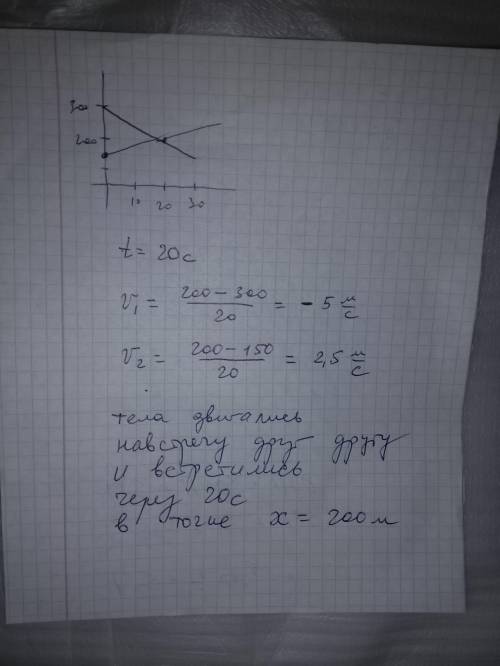 300
200
10 20 30
t = 20 с
V₁ = (200 − 300)/20 = − 5 м/с
V₂ = (200 − 150)/20 = 2,5 м/с
тела двигались
навстречу друг другу
и встретились
через 20с
в точке x = 200 м